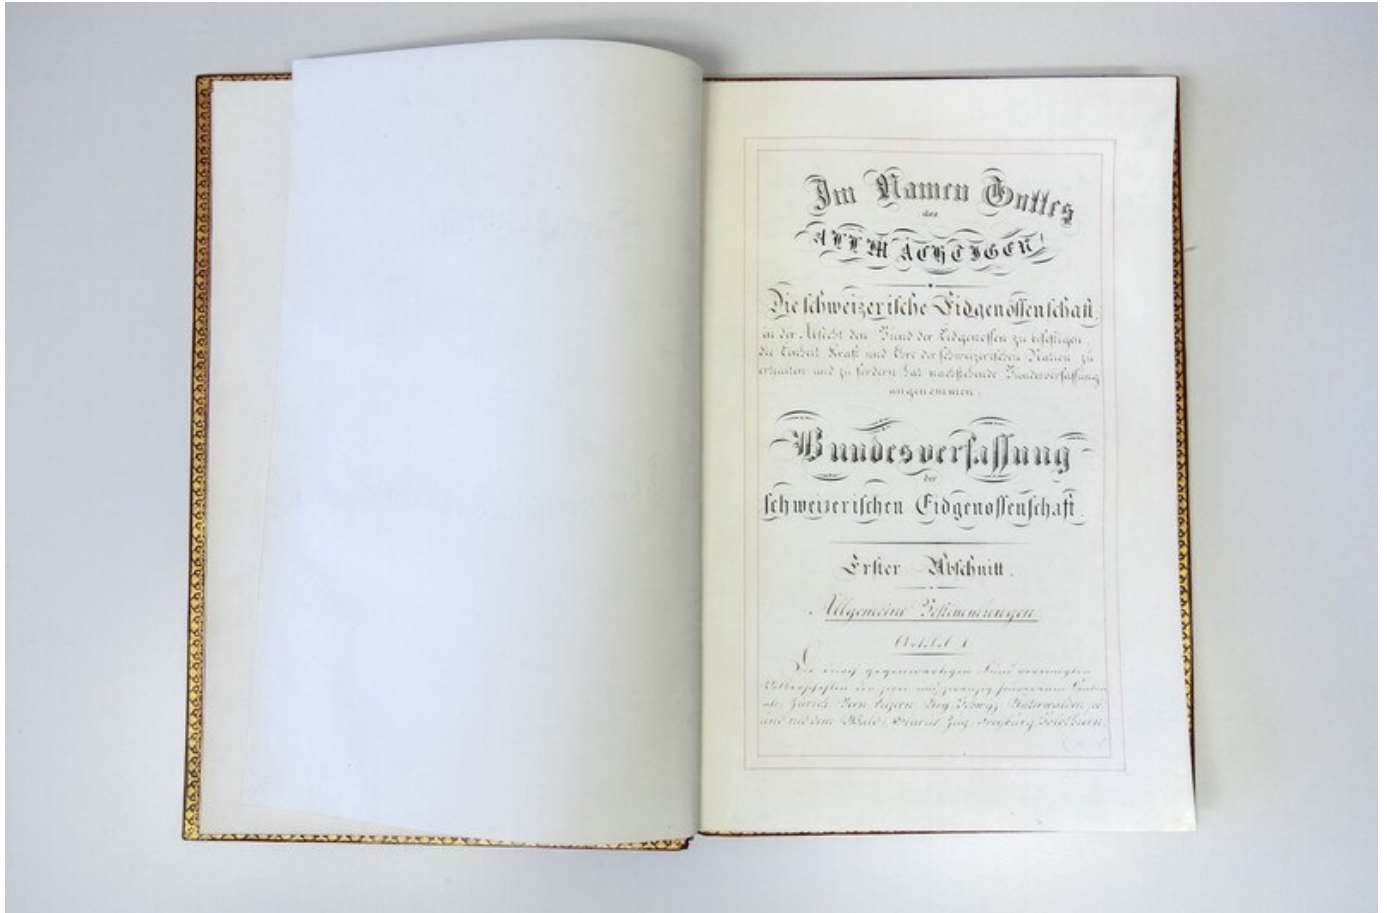 Im Namen Gottes
des
ALLMÄCHTIGEN!
Die schweizerische Eidgenossenschaft,
in der Absicht den Bund der Eidgenossen zu befestigen,
die Einheit Kraft und Ehre der schweizerischen Nation zu
erhalten und zu fördern hat nachstehende Bundesverfassung
angenommen:
Bundesverfassung
der
schweizerischen Eidgenossenschaft.
Erster Abschnitt.
Allgemeine Bestimmungen
Artikel 1
Die durch gegenwärtigen Bund vereinigten
Völkerschaften der zwei und zwanzig souveränen Kantone
als: Zürich Bern Luzern Ury Schwyz Unterwalden ob
und nid dem Wald Glarus Zug Freyburg Solothurn